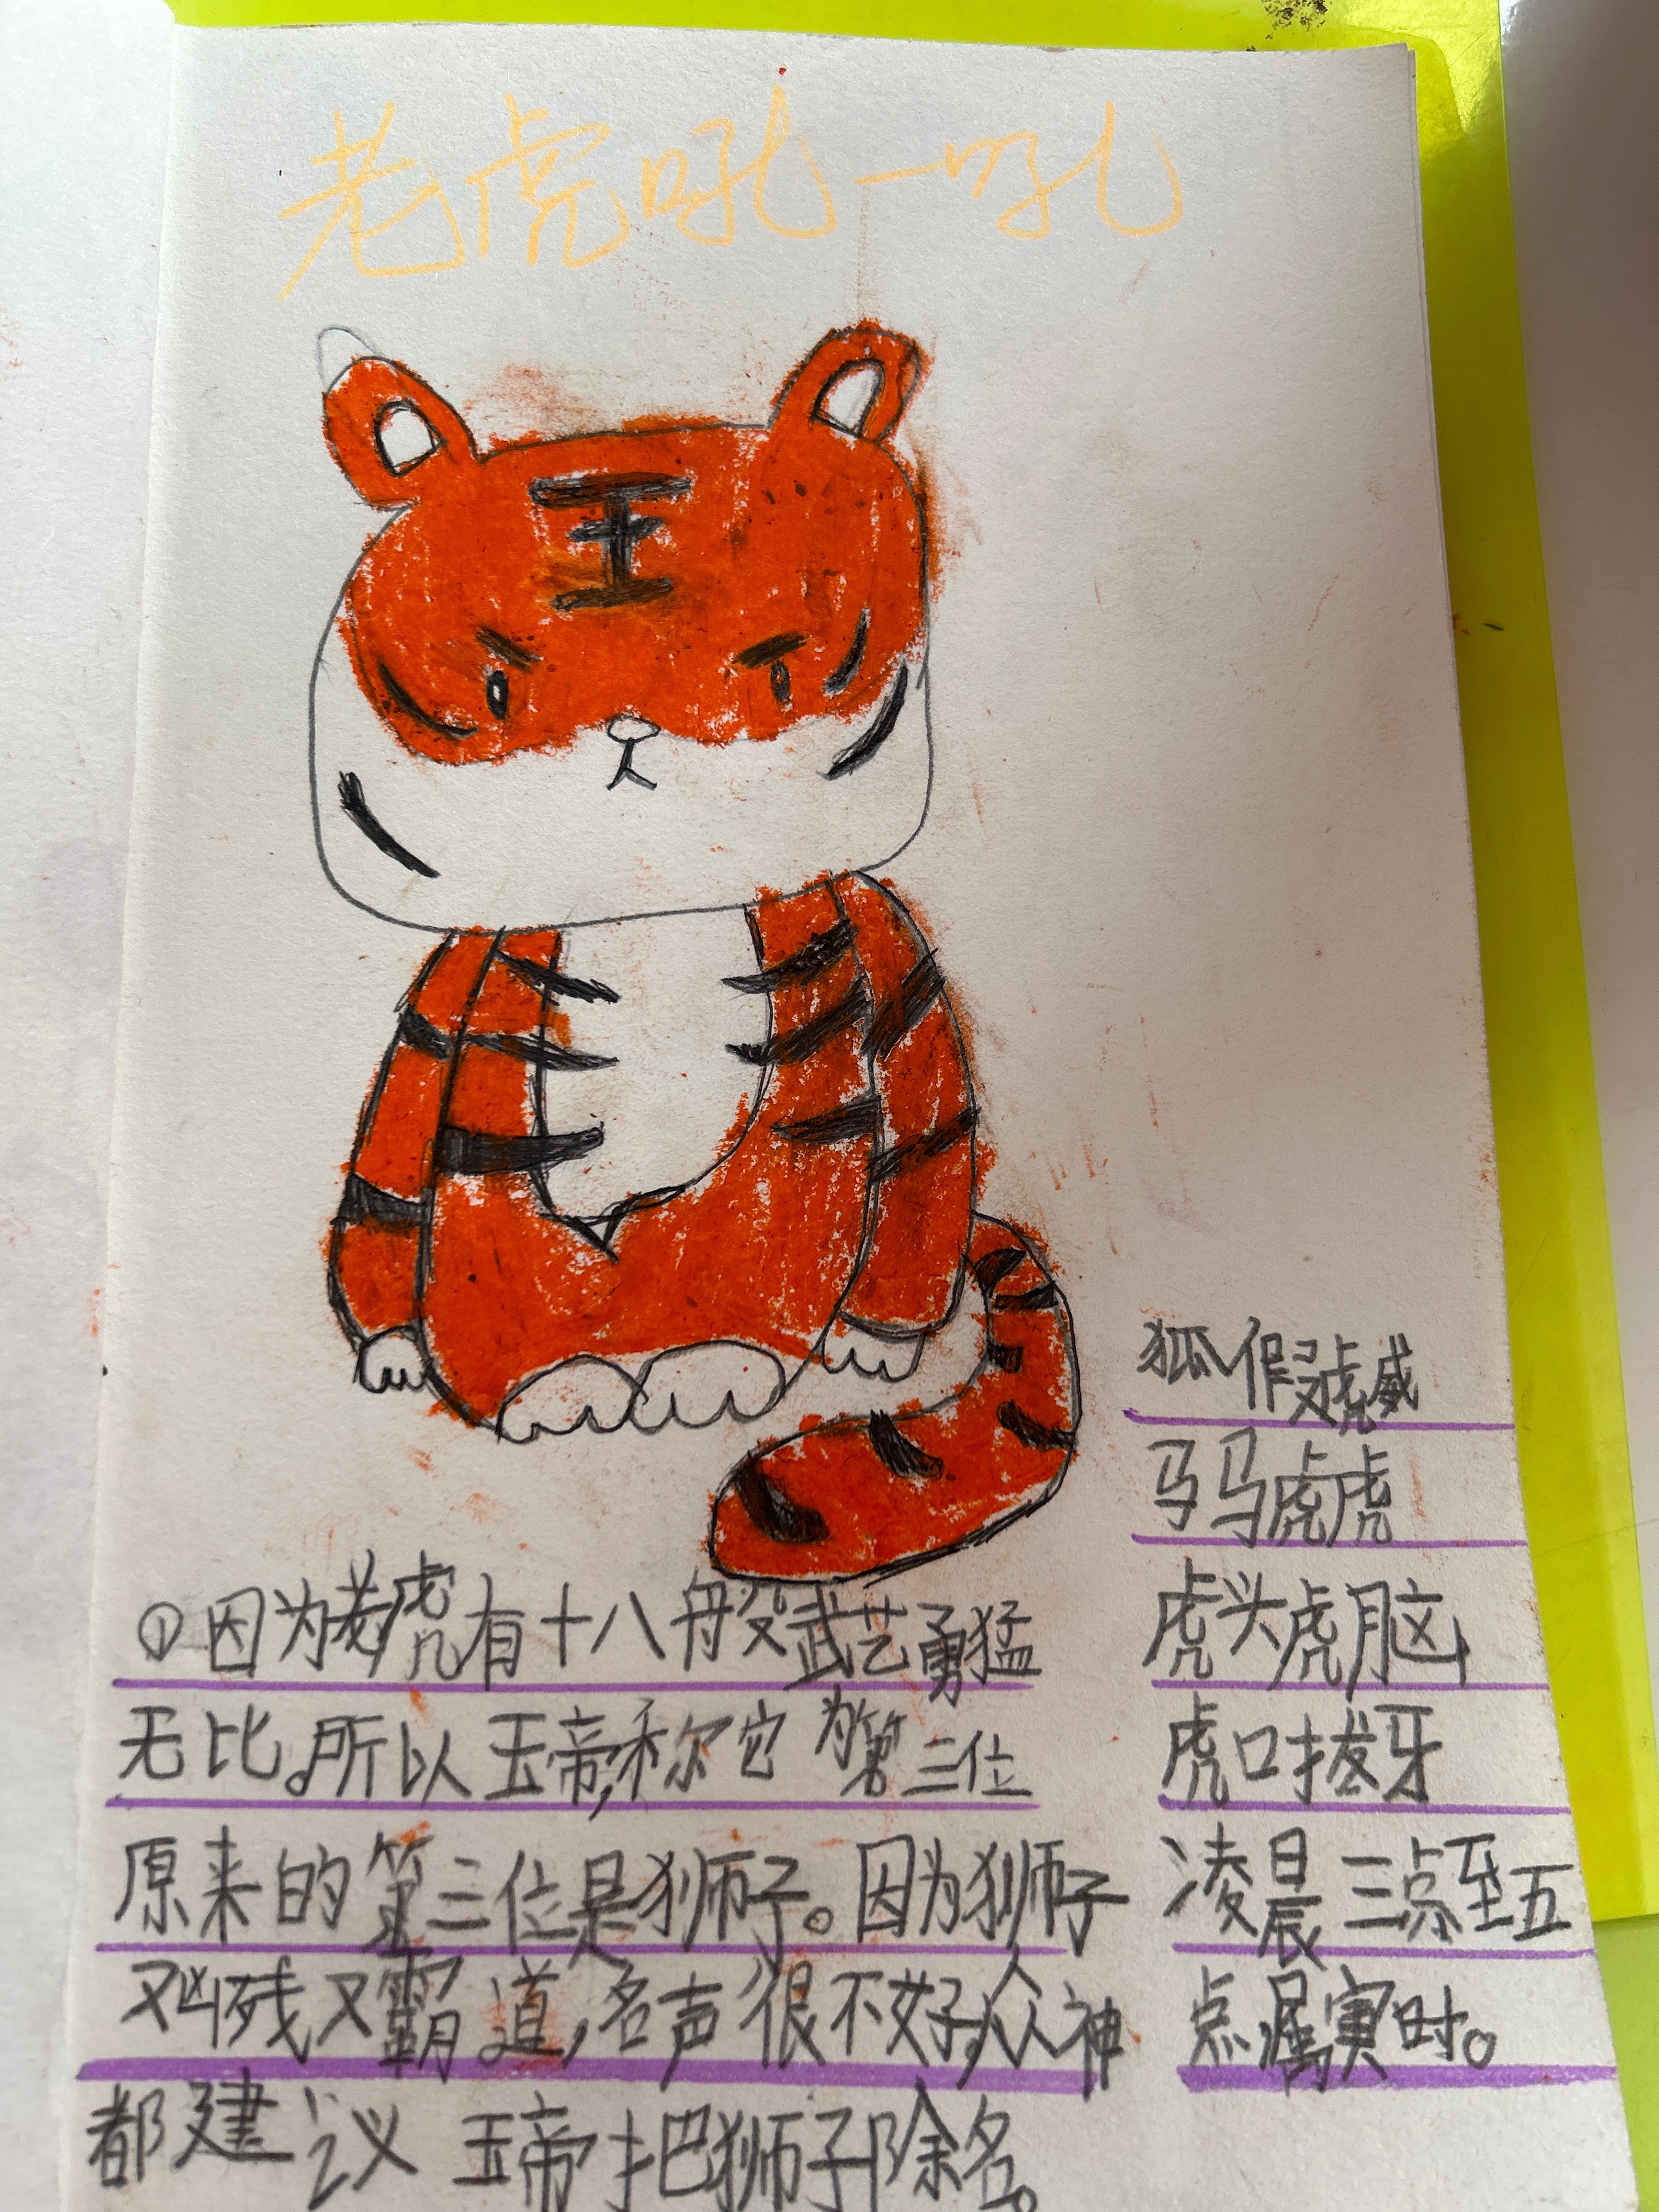 老虎吼一吼
王
①因为老虎有十八般武艺勇猛
无比。所以玉帝,称它为第三位
原来的第三位是狮子。因为狮子
又凶残又霸道,名声很不好,众神
都建议玉帝把狮子除名。
狐假虎威
马马虎虎
虎头虎脑
虎口拔牙
凌晨三点至五
点属寅时。